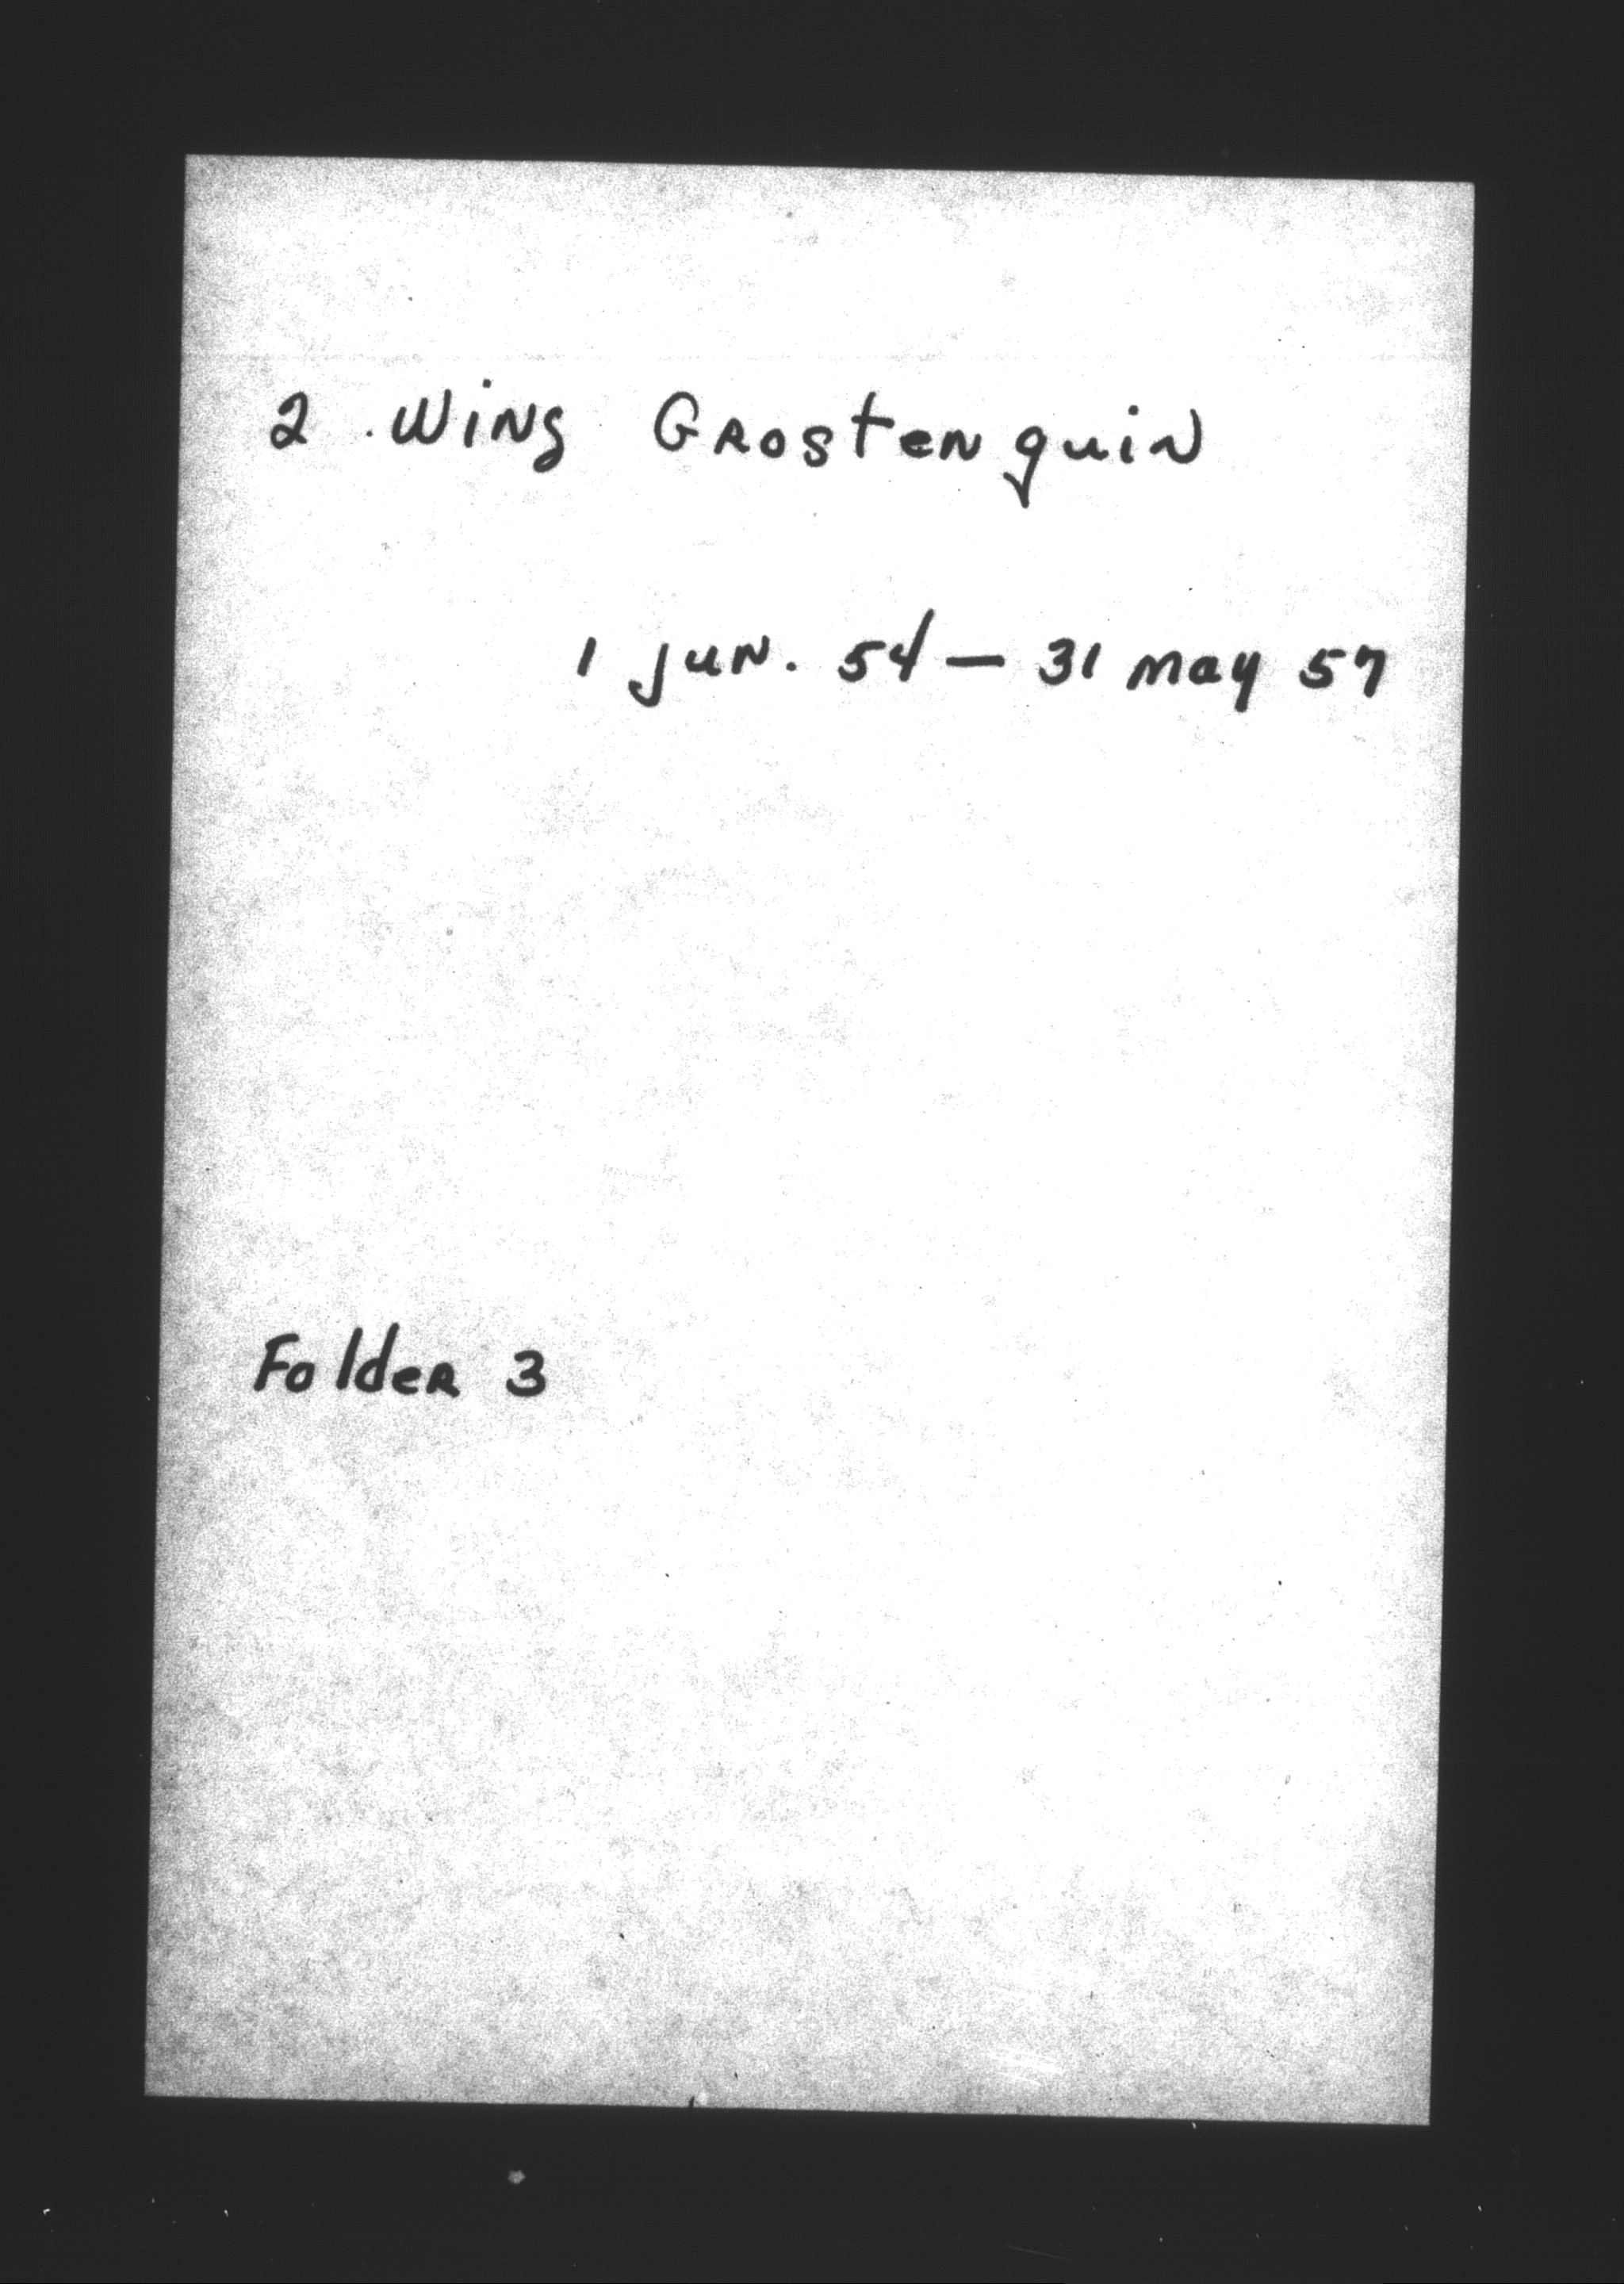 2 Wing Grostenquin
1 Jun. 54 — 31 May 57
Folder 3